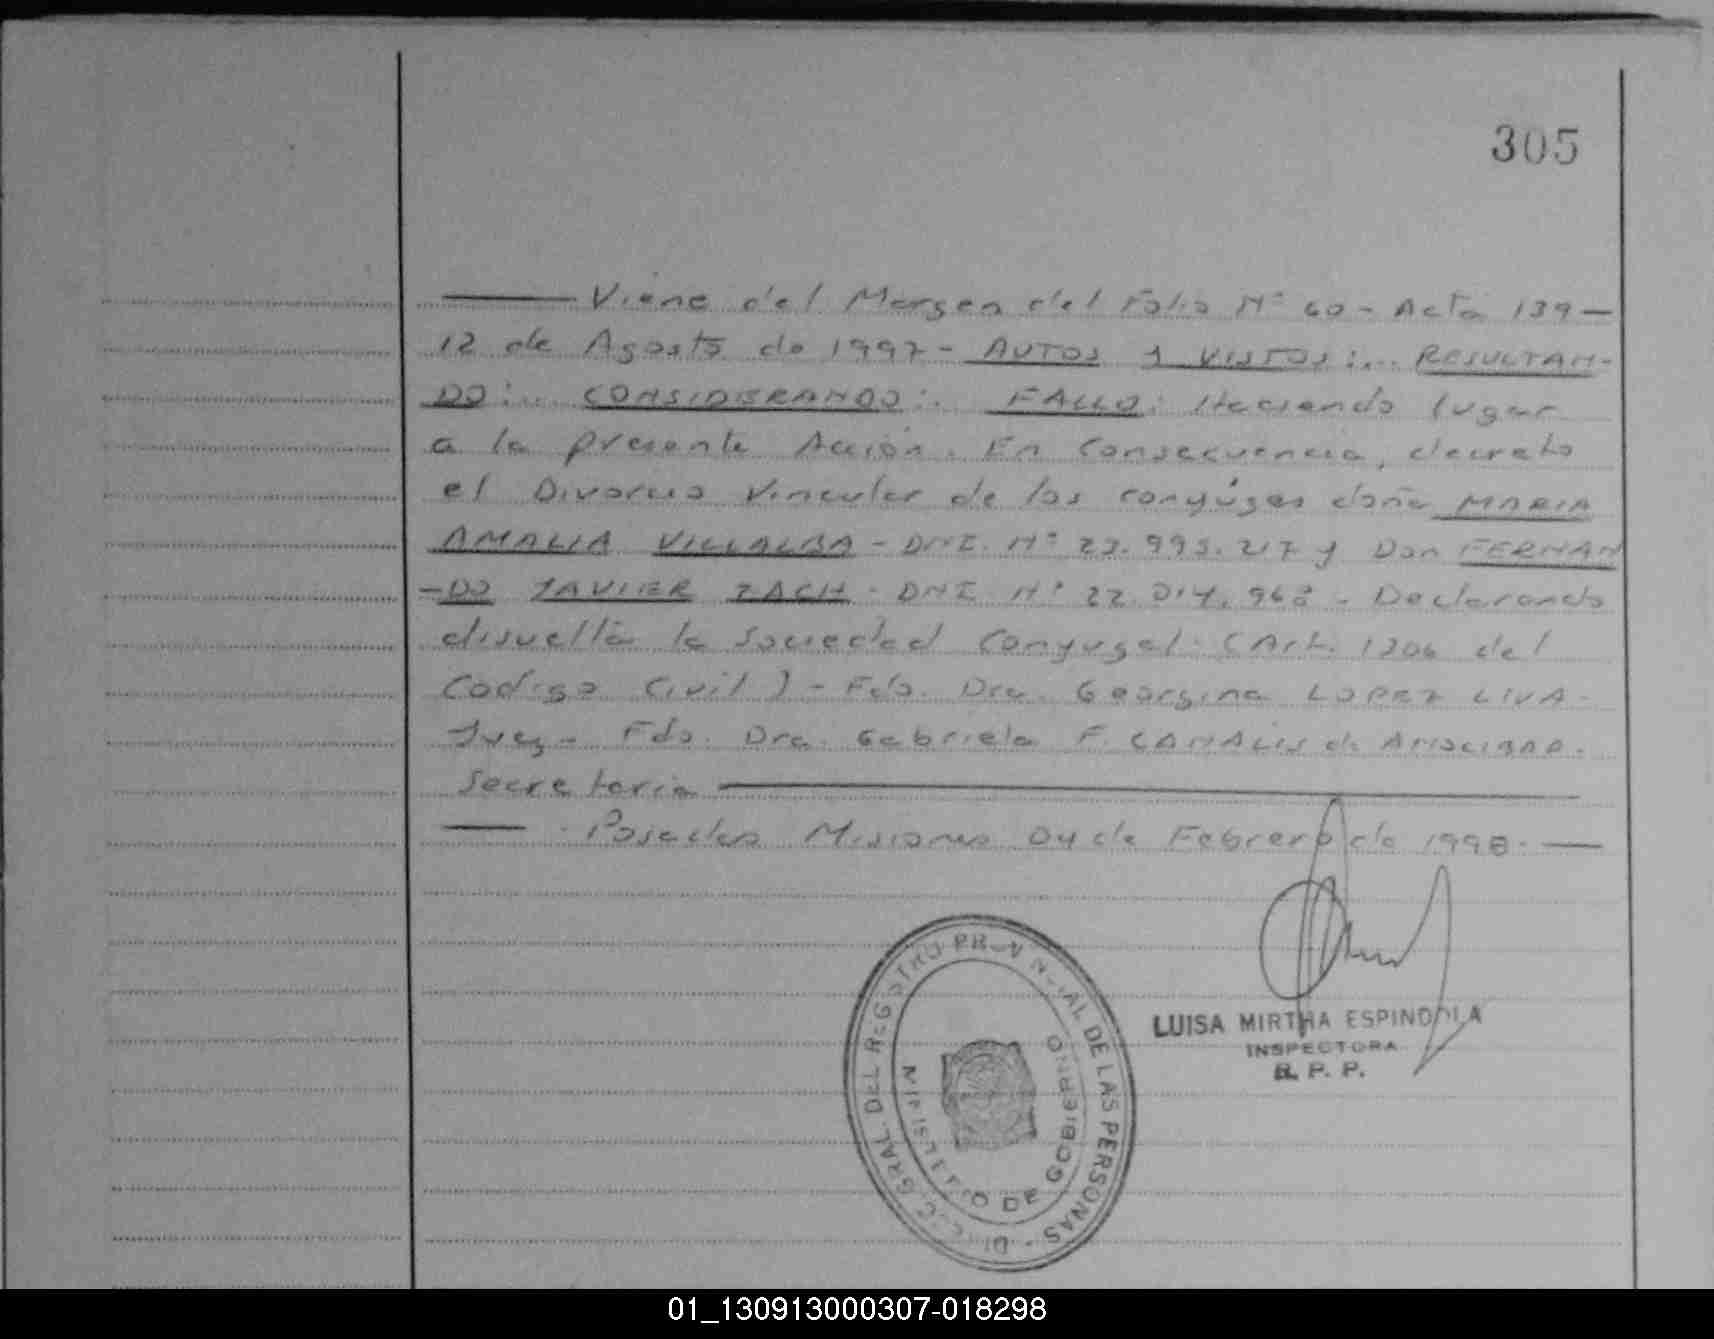 305
Viene del Margen del Folio Nº 60 - Acta 139 —
12 de Agosto de 1997 - AUTOS Y VISTOS:... RESULTAN-
DO:.. CONSIDERANDO:. FALLO: Haciendo lugar
a la presente Acción. En Consecuencia, decreto
el Divorcio Vincular de los conyúges doña MARIA
AMALIA VILLALBA - DNI. Nº y Don FERNAN
-DO JAVIER ZACH - DNI Nº 22.014.968 - Declarando
disuelta la Sociedad Conyugal. (Art. 1306 del
Codigo Civil) - Fdo. Dra. Georgina LOPEZ LIVA -
Juez - Fdo. Dra. Gabriela F. CANALIS de
Secretaria
Posadas Misiones 04 de Febrero de 1998. —
LUISA MIRTHA ESPINDOLA
INSPECTORA
R. P. P.
DIREC. GRAL. DEL REGISTRO PROVINCIAL DE LAS PERSONAS -
MINISTERIO DE GOBIERNO
01_130913000307-018298